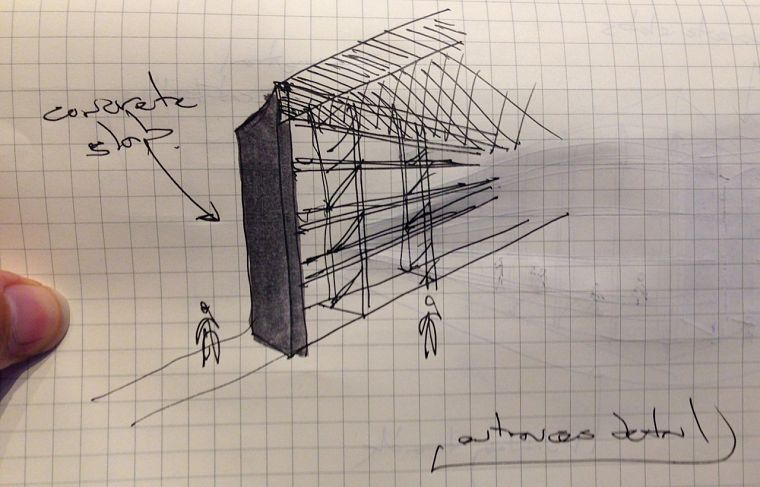 concrete
slab.
(entrances detail)